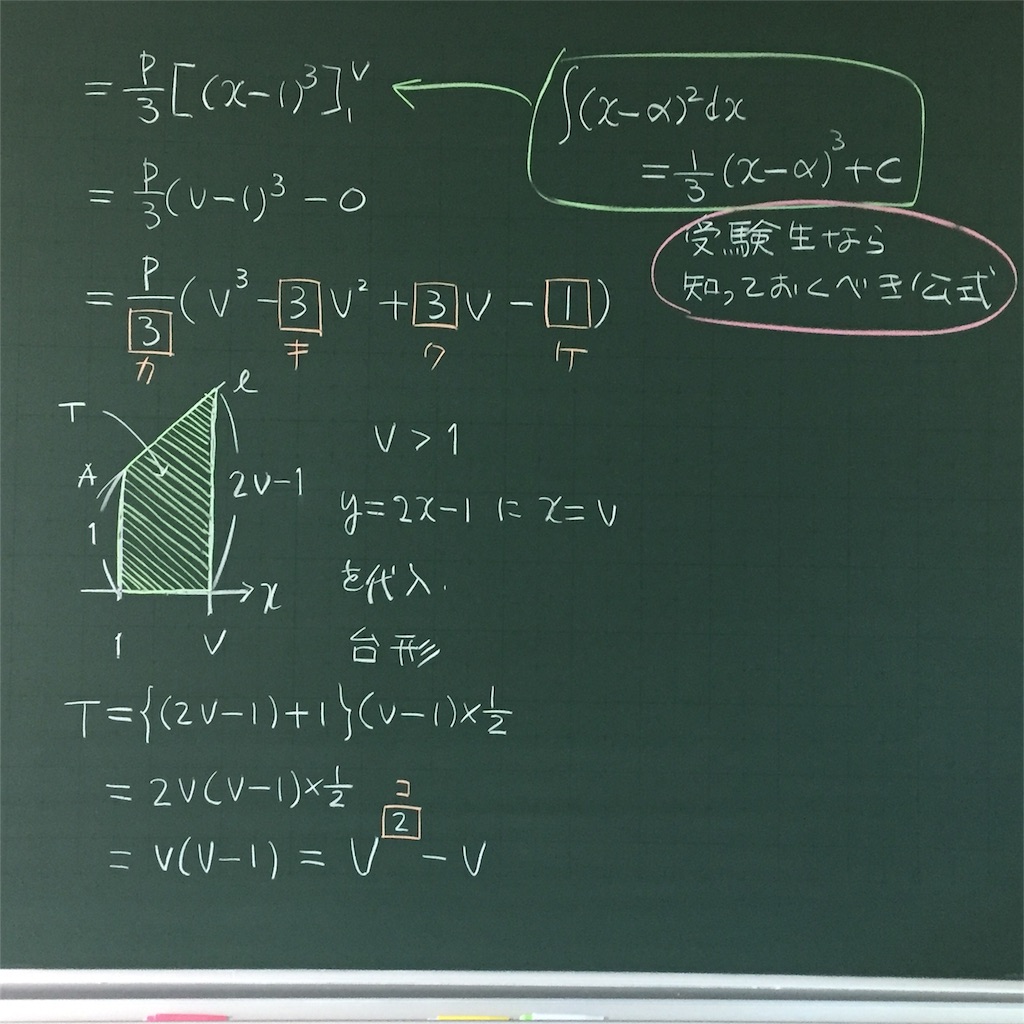 = P/3 [(x-1)³]₁ᵛ
∫(x-α)²dx
= 1/3 (x-α)³+C
= P/3 (v-1)³ - 0
受験生なら
知っておくべき公式
= P/3 (v³ - 3 v² + 3 v - 1)
カ キ ク ケ
T
l
A
1
2v-1
x
1 v
v > 1
y=2x-1 に x=v
を代入.
台形
T={(2v-1)+1}(v-1)×1/2
= 2v(v-1)×1/2
コ
= v(v-1) = v² - v